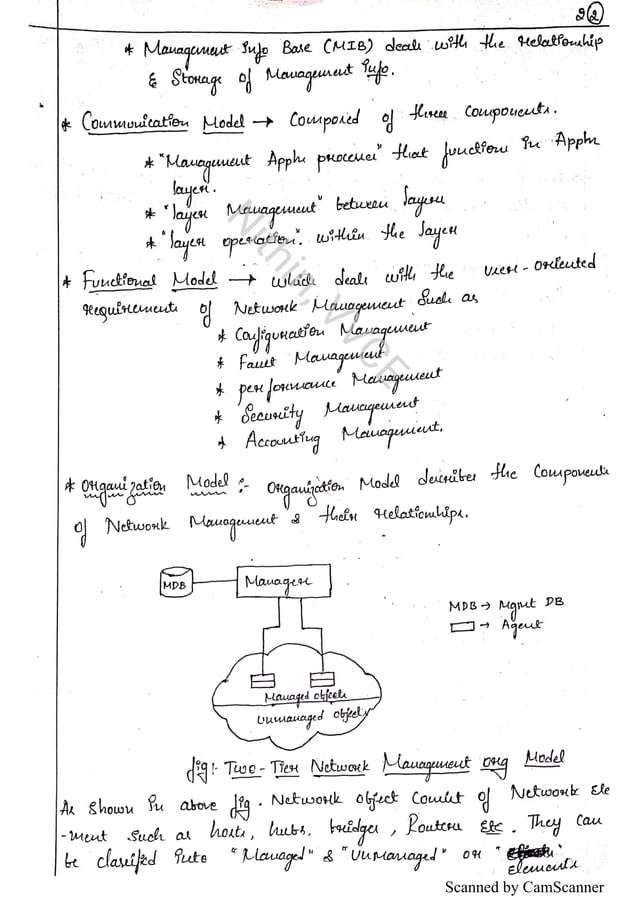 2 2
* Management Info Base (MIB) deals with the Relationship
& Storage of Management Info.
* Communication Model → Composed of three components.
* "Management Appln processes" that functions in Appln
layer.
* "layer Management" between layers
* "layer operation". within the layer
* Functional Model → which deals with the user-oriented
requirements of Network Management Such as
* Configuration Management
* Fault Management
* performance Management
* Security Management
* Accounting Management.
* Organization Model :- Organization Model describes the Components
of Network Management & their Relationships.
MDB Manager
MDB → Mgmt DB
→ Agent
Managed objects
Unmanaged objects
fig:- Two-Tier Network Management org Model
As Shown in above fig. Network object Consist of Network Ele
-ment Such as hosts, hubs, bridges, Routers Etc. They Can
be classified into "Managed" & "UnManaged" or "
Elements
Nithin, VVCE
Scanned by CamScanner